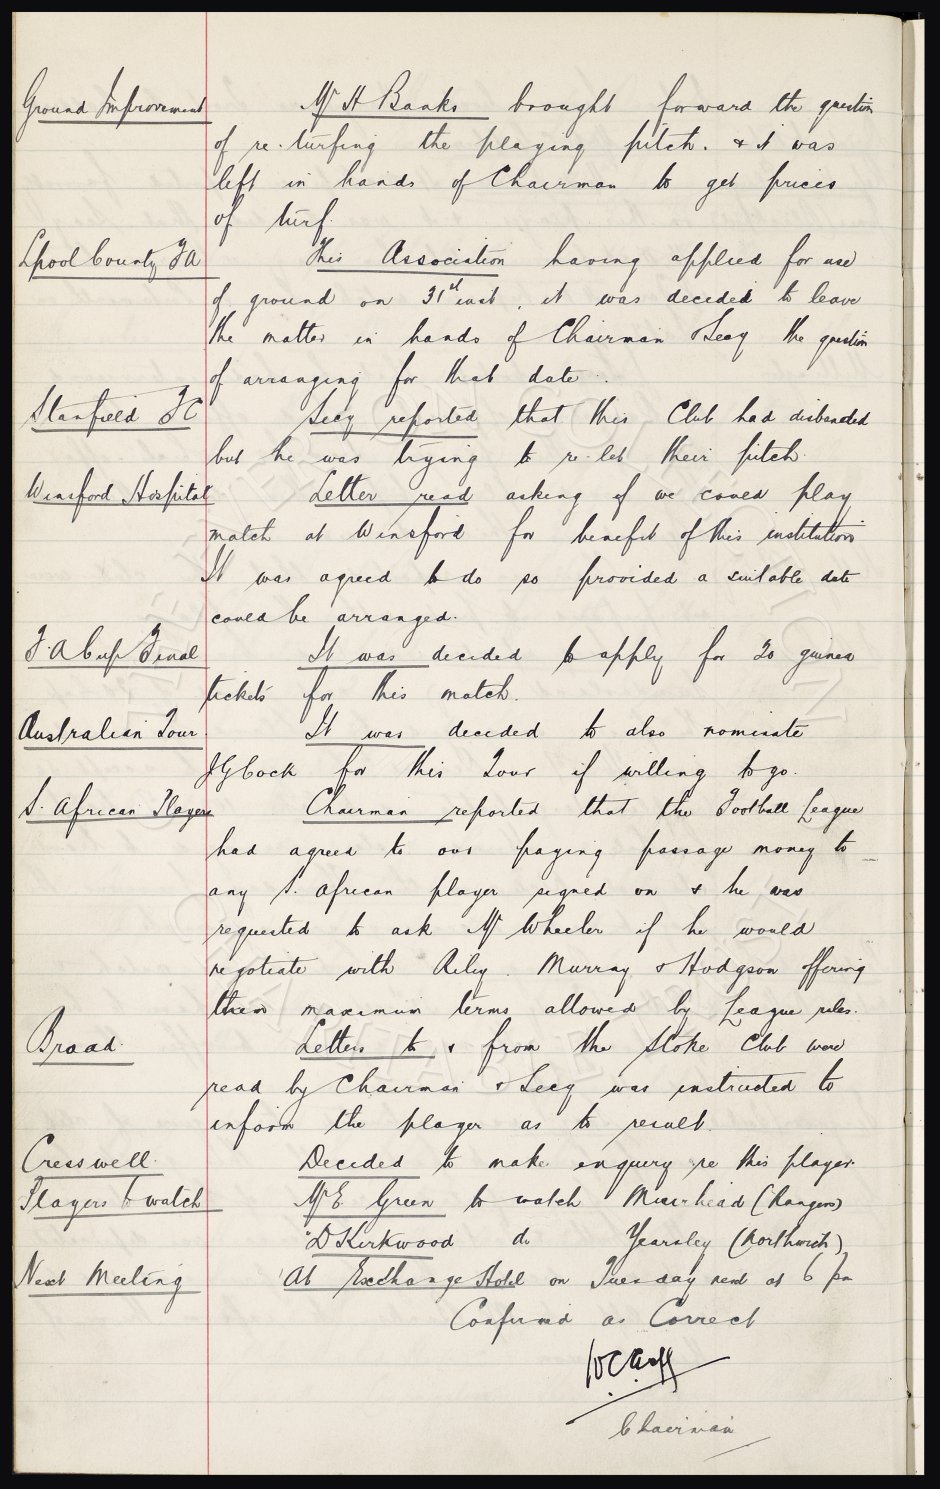 Ground Improvement
Mr H Banks brought forward the question
of re-turfing the playing pitch. & it was
left in hands of Chairman to get prices
of turf.
Lpool County FA
This Association having applied for use
of ground on 31st inst, it was decided to leave
the matter in hands of Chairman & Secy the question
of arranging for that date.
Stanfield FC
Secy reported that this Club had disbanded
but he was trying to re-let their pitch.
Winsford Hospital
Letter read asking if we could play
match at Winsford for benefit of this institution
It was agreed to do so provided a suitable date
could be arranged.
FA Cup Final
It was decided to apply for 20 guinea
tickets for this match.
Australian Tour
It was decided to also nominate
JG Cock for this Tour if willing to go.
S. African Players
Chairman reported that the Football League
had agreed to our paying passage money to
any S. African player signed on & he was
requested to ask Mr Wheeler if he would
negotiate with Riley. Murray & Hodgson offering
them maximum terms allowed by League rules.
Broad.
Letters to & from the Stoke Club were
read by Chairman & Secy was instructed to
inform the player as to result.
Cresswell
Decided to make enquiry re this player.
Players to watch
Mr E Green to watch Muirhead (Rangers)
" D Kirkwood do Yearsley (Northwich)
Next Meeting
At Exchange Hotel on Tuesday next at 6 pm
Confirmed as Correct
WC Cuff
Chairman